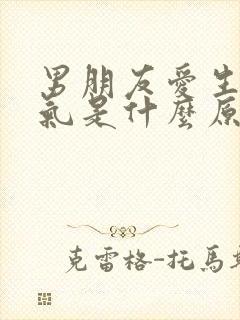 男朋友愛生
氣是什麼原
克雷格-托馬斯